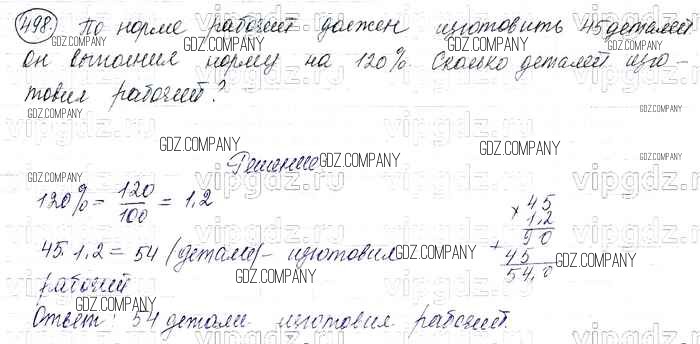 498. По норме рабочий должен изготовить 45 деталей
он выполнил норму на 120%. Сколько деталей изго-
товил рабочий?
Решение
120% = 120/100 = 1,2
45
× 1,2
90
+ 45
54,0
45 · 1,2 = 54 (детали) - изготовил
рабочий
Ответ: 54 детали изготовил рабочий.
GDZ.COMPANY
vipgdz.ru